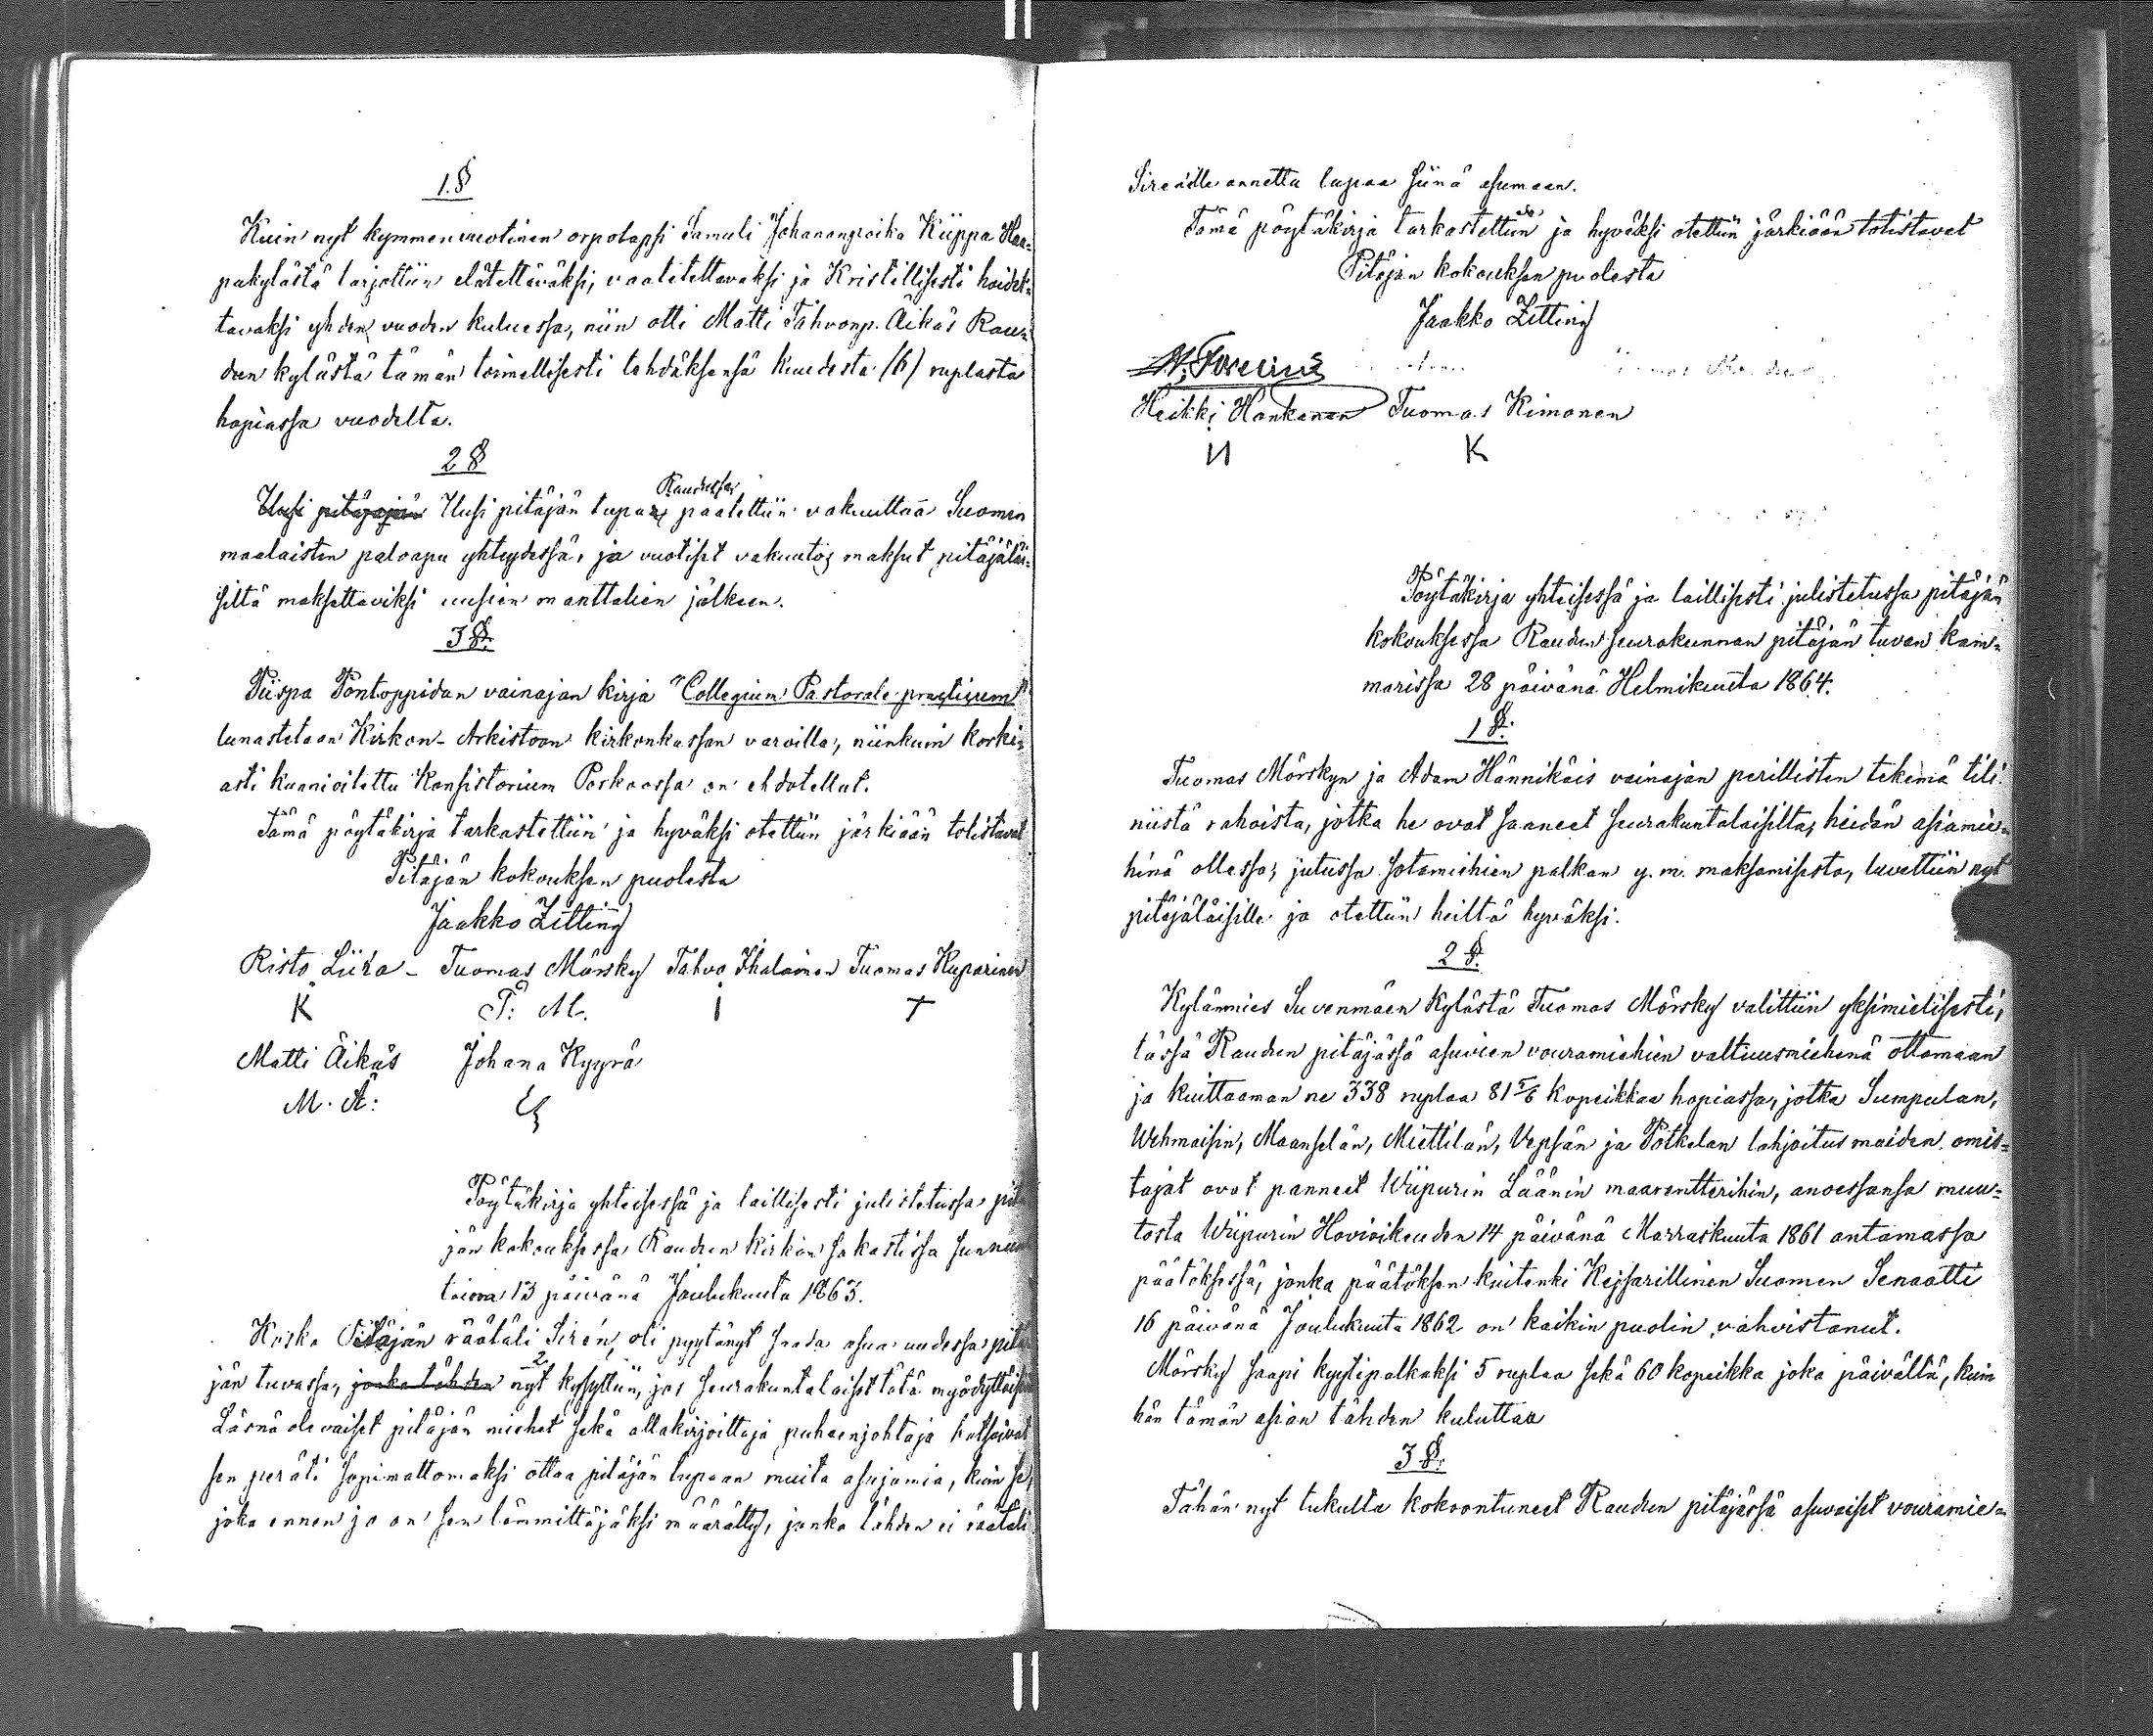 1.§
Kuin nyt kymmenvuotinen orpolapsi Samuli Johananpoika Kiippa Haa-
pakylästä tarjottiin elätettäväksi, vaatetettavaksi ja Kristillisesti hoidet-
tavaksi yhden vuoden kuluessa, niin otti Matti Tahvonp. Äikäs Rau-
dun kylästä tämän toimellisesti tehdäksensä kuudesta (6) ruplasta
hopiassa vuodelta.
2 §
Raudussa
Uusi pitäjäjän Uusi pitäjän tupa päätettiin vakuuttaa Suomen
maalaisten paloapu yhteydessä, ja vuotiset vakuutos maksut pitäjäläi-
siltä maksettaviksi uusien manttalien jälkeen.
3 §.
Piispa Pontoppidan vainajan kirja "Collegium Pastorale practicum"
lunastetaan Kirkon-Arkistoon kirkonkassan varoilla, niinkuin korki-
asti kunnioitettu Konsistorium Porkoossa on ehdotellut.
Tämä pöytäkirja tarkastettiin ja hyväksi otettiin järkiään totistavat
Pitäjän kokouksen puolesta
Jaakko Zitting
Risto Liira - Tuomas Mörsky Tahvo Ihalainen Tuomas Kuparinen
K T: M. I T
Matti Äikäs Johana Kyyrä
M. Ä:
Pöytäkirja yhteisessä ja laillisesti julistetussa pitä
jän kokouksessa Raudun kirkon sakastissa sunnun
taina 13 päivänä Joulukuuta 1863.
Koska Pitäjän räätäli Sirén, oli pyytänyt saada asua uudessa pitä
jän tuvassa, jonka tähden nyt kysyttiin, jos seurakuntalaiset tätä myödyttäisi
Läsnä olevaiset pitäjän miehet sekä allakirjoittaja puheenjohtaja katsoivat
sen peräti sopimattomaksi ottaa pitäjän tupaan muita asujamia, kuin se,
joka ennen jo on sen lämmittäjäksi määrätty, jonka tähden ei räätäli
Sirenille annettu lupaa siinä asumaan.
Tämä pöytäkirja tarkastettiin ja hyväksi otettiin järkiään totistavat
Pitäjän kokouksen puolesta
Jaakko Zitting
Heikki Honkanen Tuomas Kimonen
И K
Pöytäkirja yhteisessä ja laillisesti julistetussa pitäjän
kokouksessa Raudun seurakunnan pitäjän tuvan kam-
marissa 28 päivänä Helmikuuta 1864.
1 §.
Tuomas Mörskyn ja Adam Hännikäis vainajan perillisten tekemä tili
niistä rahoista, jotka he ovat saaneet seurakuntalaisilta, heidän asiamie-
hinä ollessa, jutussa sotamiehien palkan y. m. maksamisesta, luvettiin nyt
pitäjäläisille ja otettiin heiltä hyväksi.
2 §.
Kylänmies Suvenmäen kylästä Tuomas Mörsky valittiin yksimielisesti,
tässä Raudun pitäjässä asuvien vouramiehien valtuusmiehenä ottamaan
ja kuittaaman ne 338 ruplaa 81 5/6 kopeikkaa hopiassa, jotka Sumpulan,
Wehmaisin, Maanselän, Miettilän, Vepsän ja Potkelan lahjoitus maiden omis-
tajat ovat panneet Wiipurin Läänin maarentterihin, anoessansa muu-
tosta Wiipurin Hovioikeuden 14 päivänä Marraskuuta 1861 antamassa
päätöksessä, jonka päätöksen kuitenki Kejsarillinen Suomen Senaatti
16 päivänä Joulukuuta 1862 on kaikin puolin vahvistanut.
Mörsky saapi kyytipalkaksi 5 ruplaa sekä 60 kopeikka joka päivältä, kuin
hän tämän asian tähden kuluttaa
3 §.
Tähän nyt tukulta kokoontuneet Raudun pitäjässä asuvaiset vouramie-